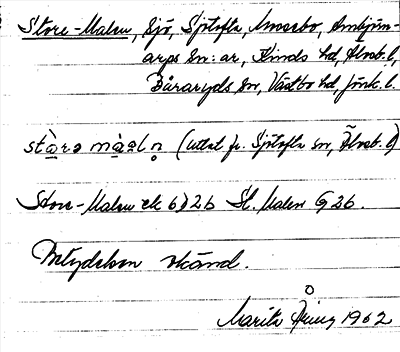 Store-Malen, Sjö, Sjötofta, Mossebo, Ambjörn-
arps sn:ar, Kinds hd, Älvsb. l,
Båraryds sn, Västbo hd, Jönk. l.
(uttal fr. Sjötofta sn, Älvsb. l)
Store-Malen ek 6J26 St. Malen G26.
Betydelsen okänd.
Marita 1962